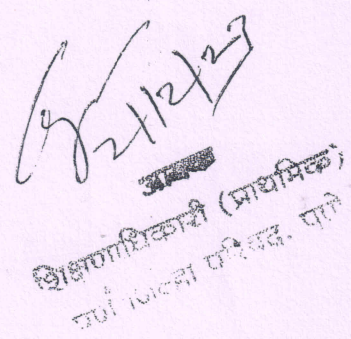 2/12/23
शिक्षणाधिकारी (प्राथमिक)
पुणे जिल्हा परिषद, पुणे